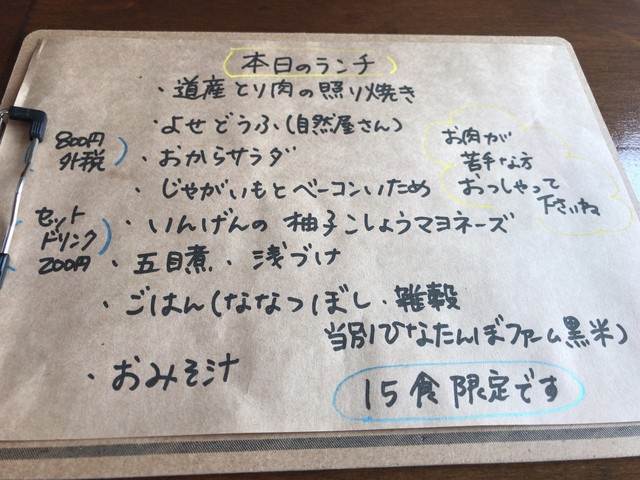 本日のランチ
・道産とり肉の照り焼き
・よせどうふ(自然屋さん)
・おからサラダ
・じゃがいもとベーコンいため
・いんげんの 柚子こしょうマヨネーズ
・五目煮、浅づけ
・ごはん(ななつぼし・雑穀
当別ひなたんぼファーム黒米)
・おみそ汁
800円
外税
セット
ドリンク
200円
お肉が
苦手な方
おっしゃって
下さいね
15食限定です